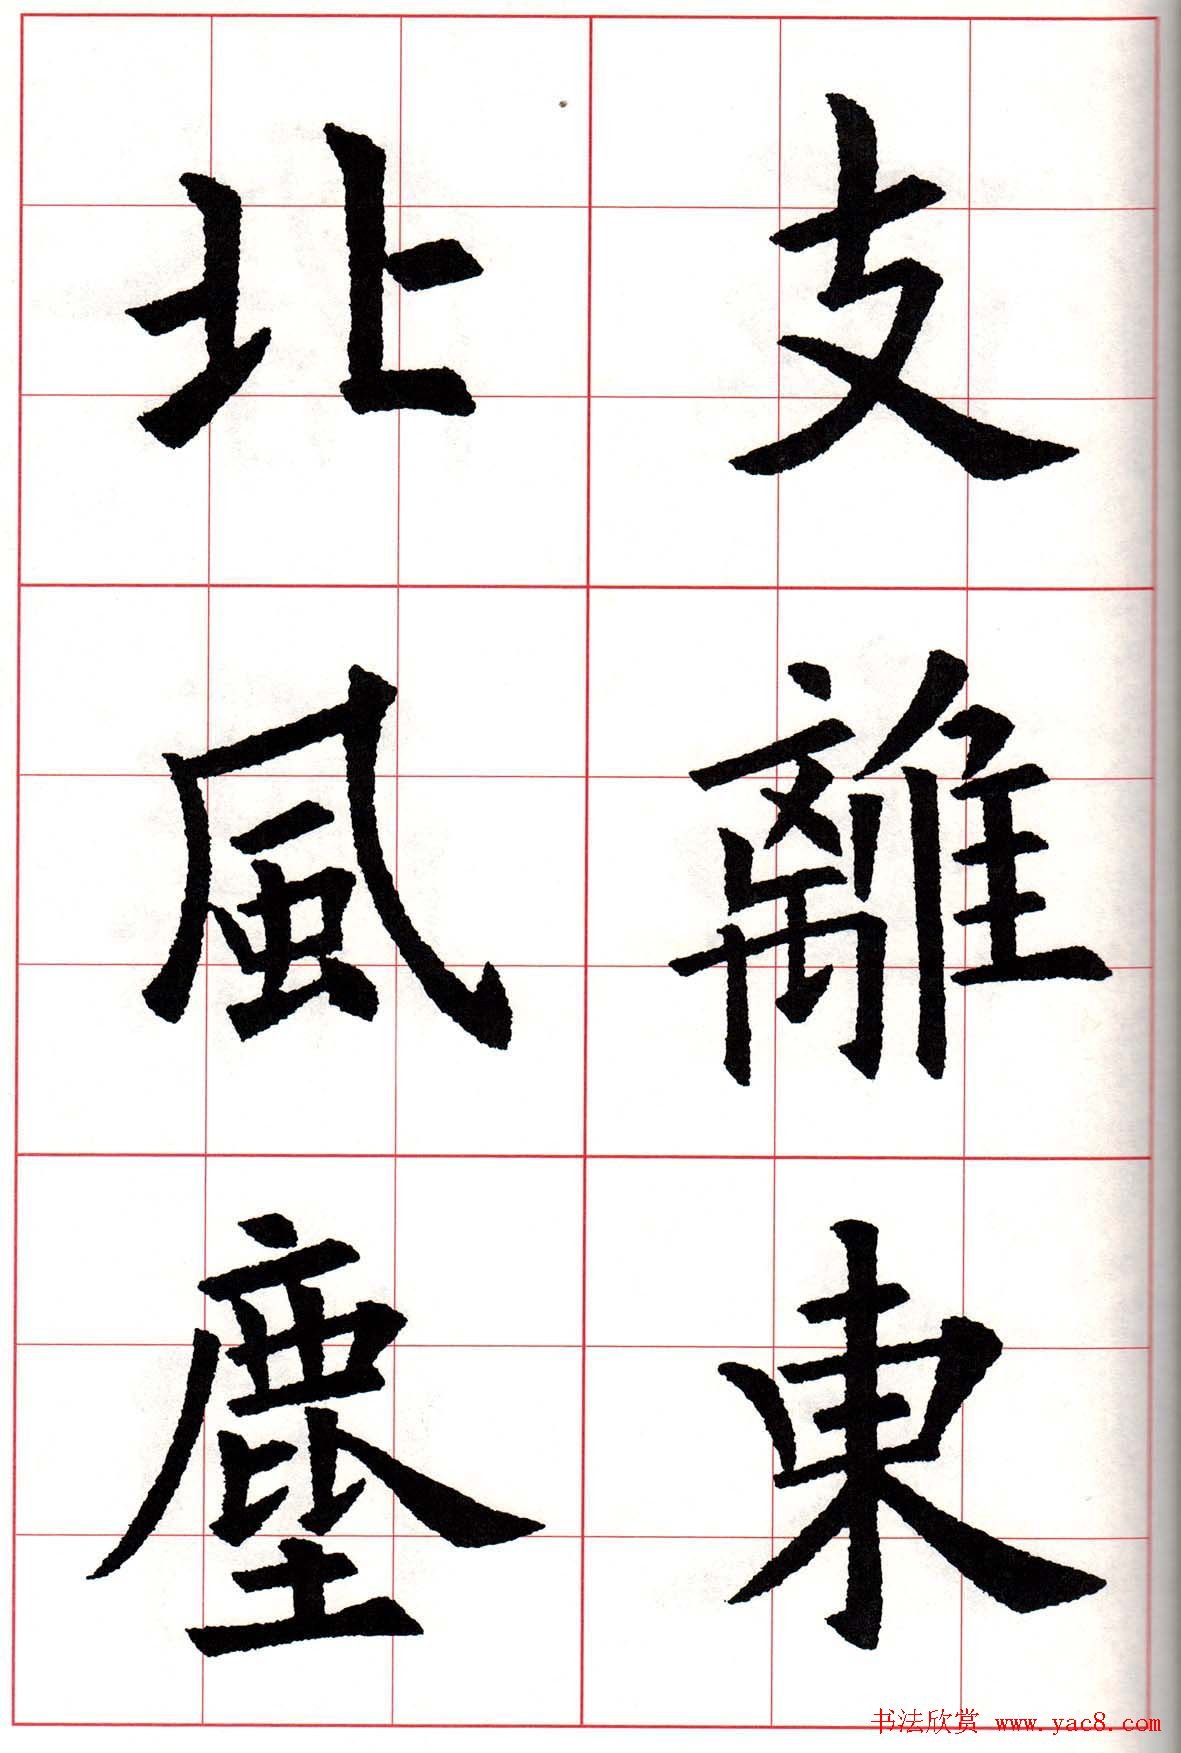 支離東
北風塵
书法欣赏 www.yac8.com